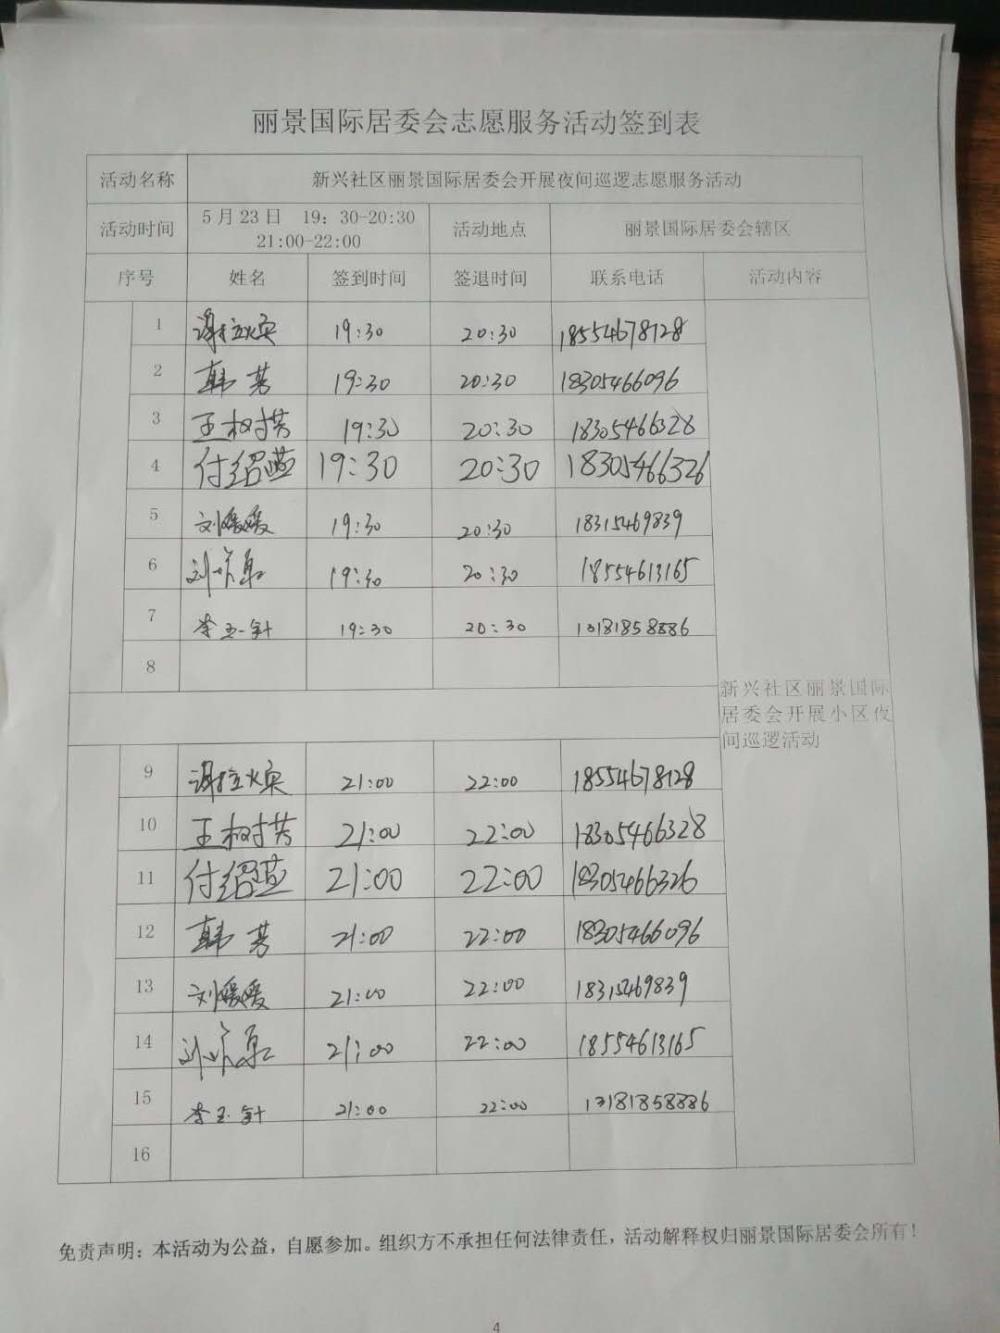 丽景国际居委会志愿服务活动签到表
活动名称 新兴社区丽景国际居委会开展夜间巡逻志愿服务活动
活动时间 5月23日 19:30-20:30 活动地点 丽景国际居委会辖区
21:00-22:00
序号 姓名 签到时间 签退时间 联系电话 活动内容
1 19:30 20:30 18554678128
2 韩芳 19:30 20:30 18305466096
3 王树芳 19:30 20:30 18305466328
4 付绍燕 19:30 20:30 18305466326
5 刘媛媛 19:30 20:30 18315469839
6 19:30 20:30 18554613165
7 李玉针 19:30 20:30 13181858886
8
新兴社区丽景国际
居委会开展小区夜
间巡逻活动
9 21:00 22:00 18554678128
10 王树芳 21:00 22:00 18305466328
11 付绍燕 21:00 22:00 18305466326
12 韩芳 21:00 22:00 18305466096
13 刘媛媛 21:00 22:00 18315469839
14 21:00 22:00 18554613165
15 李玉针 21:00 22:00 13181858886
16
免责声明：本活动为公益，自愿参加。组织方不承担任何法律责任，活动解释权归丽景国际居委会所有！
4